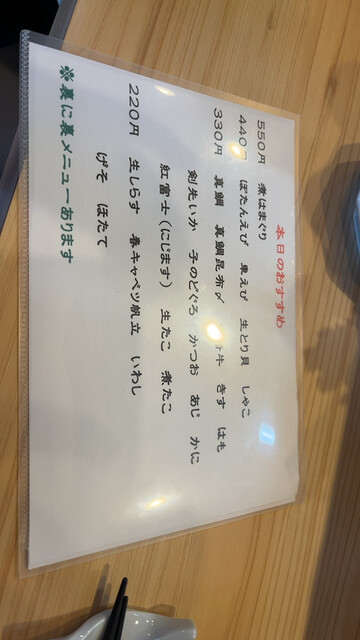 本日のおすすめ
550円 煮はまぐり
440円 ぼたんえび 車えび 生とり貝 しゃこ
330円 真鯛 真鯛昆布〆 牛 きす はも
剣先いか 子のどぐろ かつお あじ かに
紅富士(にじます) 生たこ 煮たこ
220円 生しらす 春キャベツ帆立 いわし
げそ ほたて
※裏に裏メニューあります